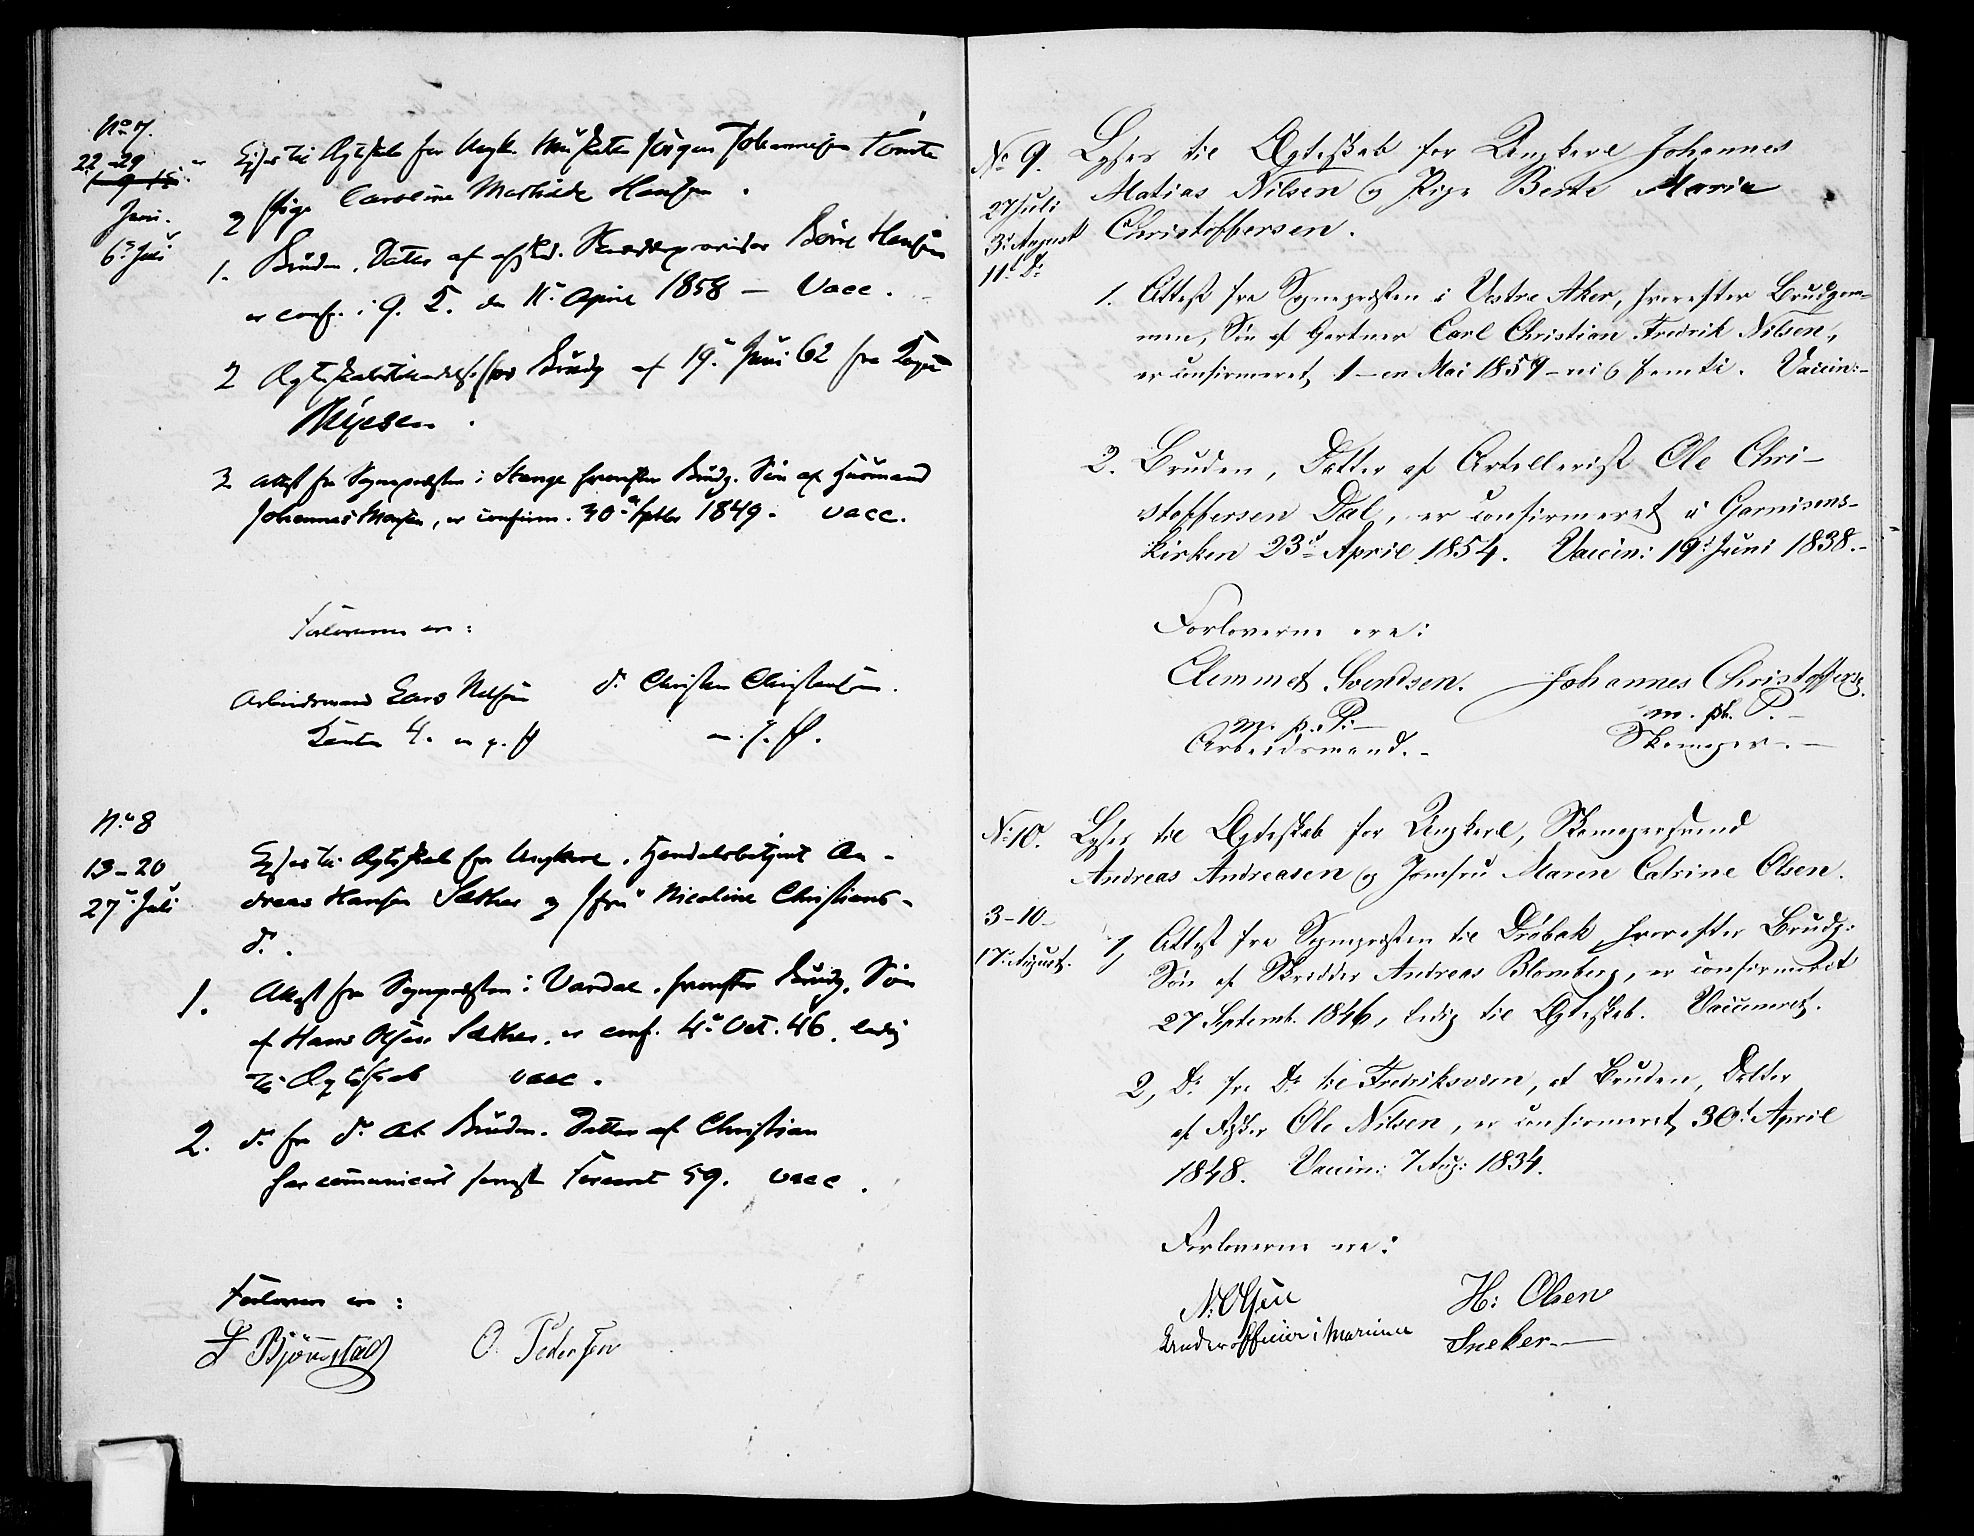 No 7.
22-29
Juni.
6te Juli
Lyses til Ægteskab for Ungk. Musketer Jörgen Johannesen Tomte
og Pige Caroline Mathilde Hansen.
1. Bruden, Datter af afsked. Hansen
er conf. i G. d. April 1858 — Vacc.
2 for Brudg af 19de Juni 62 fra
3 Attest fra Sognepræsten i Stange hvorefter Brudg. Sön af Huusmand
Johannes, er confirm. 30te Septbr 1849. vacc.
Forloverne ere:
Arbeidsmand Lars Nilsen do Christen Christensen.
m. p. P
m. p. P.
No 8
13-20
27de Juli
Lyses til Ægteskab for Ungkarl, Handelsbetjent An-
dreas Hansen Sæther og Jfru Nicoline Christians-
d.
1. Attest fra Sognepræsten i Vardal, hvorefter Brudg. Sön
af Hans Olsen Sæther, er conf. 4de Oct. 46, ledig
til Ægteskab vacc.
2. do fra do at Bruden, Datter af Christian
har communiceret 59. vacc.
Forloverne ere:
Björnstad O. Pedersen
No 9.
27 Juli
3die August
11te Do
Lyses til Ægteskab for Ungkarl Johannes
Matias Nilsen og Pige Berte Maria
Christoffersen.
1. Attest fra Sognepræsten i Vestre Aker, hvorefter Brudgom-
men, Sön af Gartner Carl Christian Fredrik Nilsen,
er confirmeret 1-en Mai 1859-ni og femti. Vaccin:-
2. Bruden, Datter af Artellerist Ole Chri-
stoffersen Dal, er confirmeret i Garnisons-
kirken 23de April 1854. Vaccin: 19de Juni 1838.-
Forloverne ere:
Clemmet Svendsen. Johannes Christoffersen.
m. p. P.- m. ph. P.-
Arbeidsmand.- Skomager.-
No 10.
Lyses til Ægteskab for Ungkarl, Skomagersvend
Andreas Andreasen og Jomfru Maren Catrine Olsen.
3-10-
17de August.
1, Attest fra Sognepræsten til Dröbak, hvorefter Brudg:
Sön af Skredder Andreas Blomberg, er confirmeret
27 Septemb. 1846, ledig til Ægteskab. Vaccineret.
2, Do fra Do til Fredriksværn, at Bruden, Datter
af Ole Nilsen, er confirmeret 30te April
1848. Vaccin: 7 Aug: 1834.
Forloverne ere:
N. Olsen H: Olsen
Underofficier i Marinen Sneker-